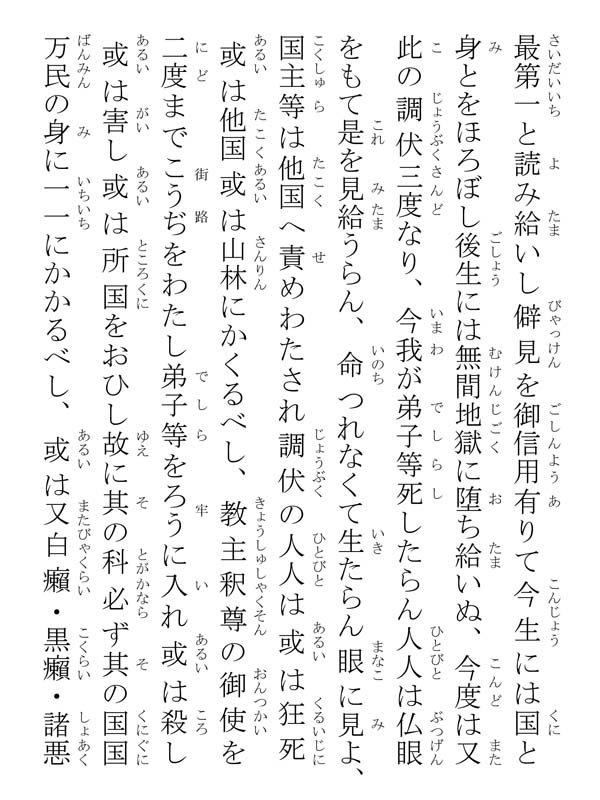 最第一と読み給いし僻見を御信用有りて今生には国と
身とをほろぼし後生には無間地獄に堕ち給いぬ、今度は又
此の調伏三度なり、今我が弟子等死したらん人人は仏眼
をもて是を見給うらん、命つれなくて生たらん眼に見よ、
国主等は他国へ責めわたされ調伏の人人は或は狂死
或は他国或は山林にかくるべし、教主釈尊の御使を
二度までこうぢをわたし弟子等をろうに入れ或は殺し
或は害し或は所国をおひし故に其の科必ず其の国国
万民の身に一一にかかるべし、或は又白癩・黒癩・諸悪